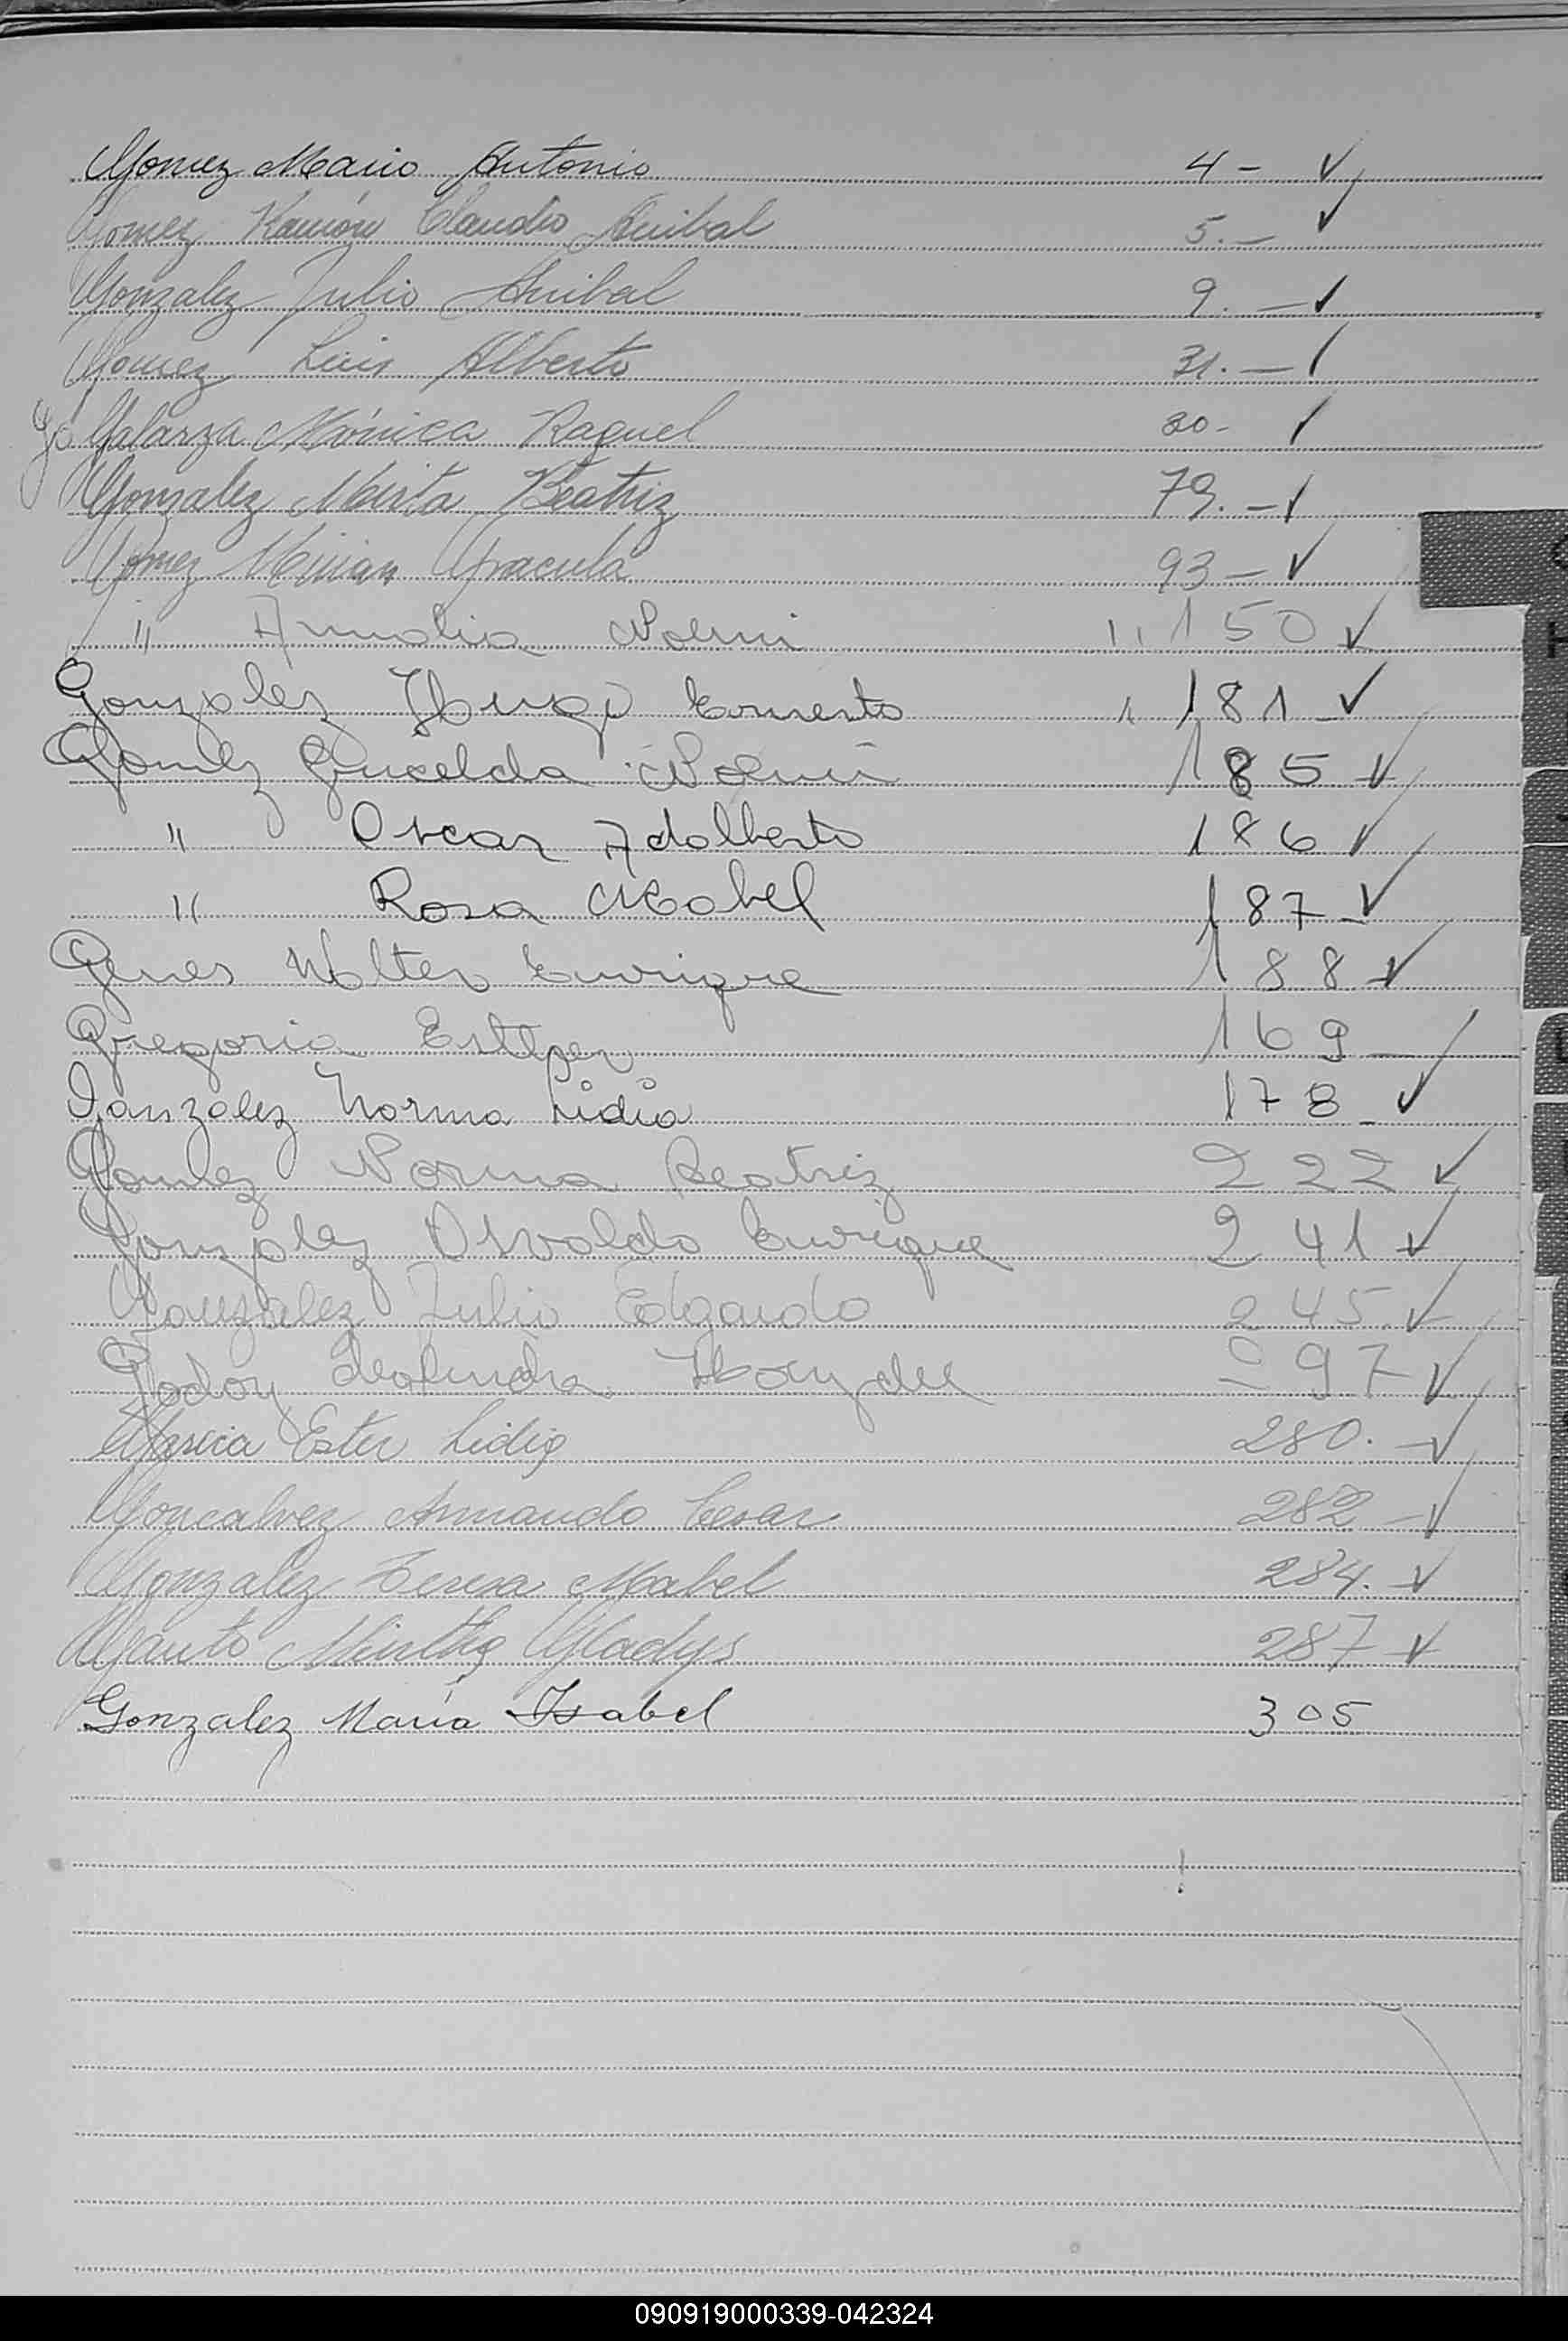 Gomez Mario Antonio 4 - ✓
Gomez Ramón Claudio Anibal 5. - ✓
Gonzalez Julio Anibal 9. - ✓
Gomez Luis Alberto 31. - ✓
Galarza Mónica Raquel 30 - ✓
Gonzalez Mirta Beatriz 79. - ✓
Gomez Mirian Graciela 93 - ✓
" Amalia Noemi 150 ✓
Gonzalez Hugo Ernesto 181 - ✓
Gomez Griselda Noemi 185 ✓
" Oscar Adalberto 186 ✓
" Rosa Mabel 187 - ✓
Genes Walter Enrique 188 ✓
Gregoria Esther 169 - ✓
Gonzalez Norma Lidia 178 - ✓
Gomez Norma Beatriz 222 ✓
Gonzalez Osvaldo Enrique 241 ✓
Gonzalez Julio Edgardo 245. ✓
Godoy Haydee 97 ✓
Garcia Ester Lidia 280. - ✓
Goncalvez Armando Cesar 282 - ✓
Gonzalez Teresa Mabel 284. ✓
Gauto Mirtha Gladys 287 ✓
Gonzalez María Isabel 305
H
090919000339-042324